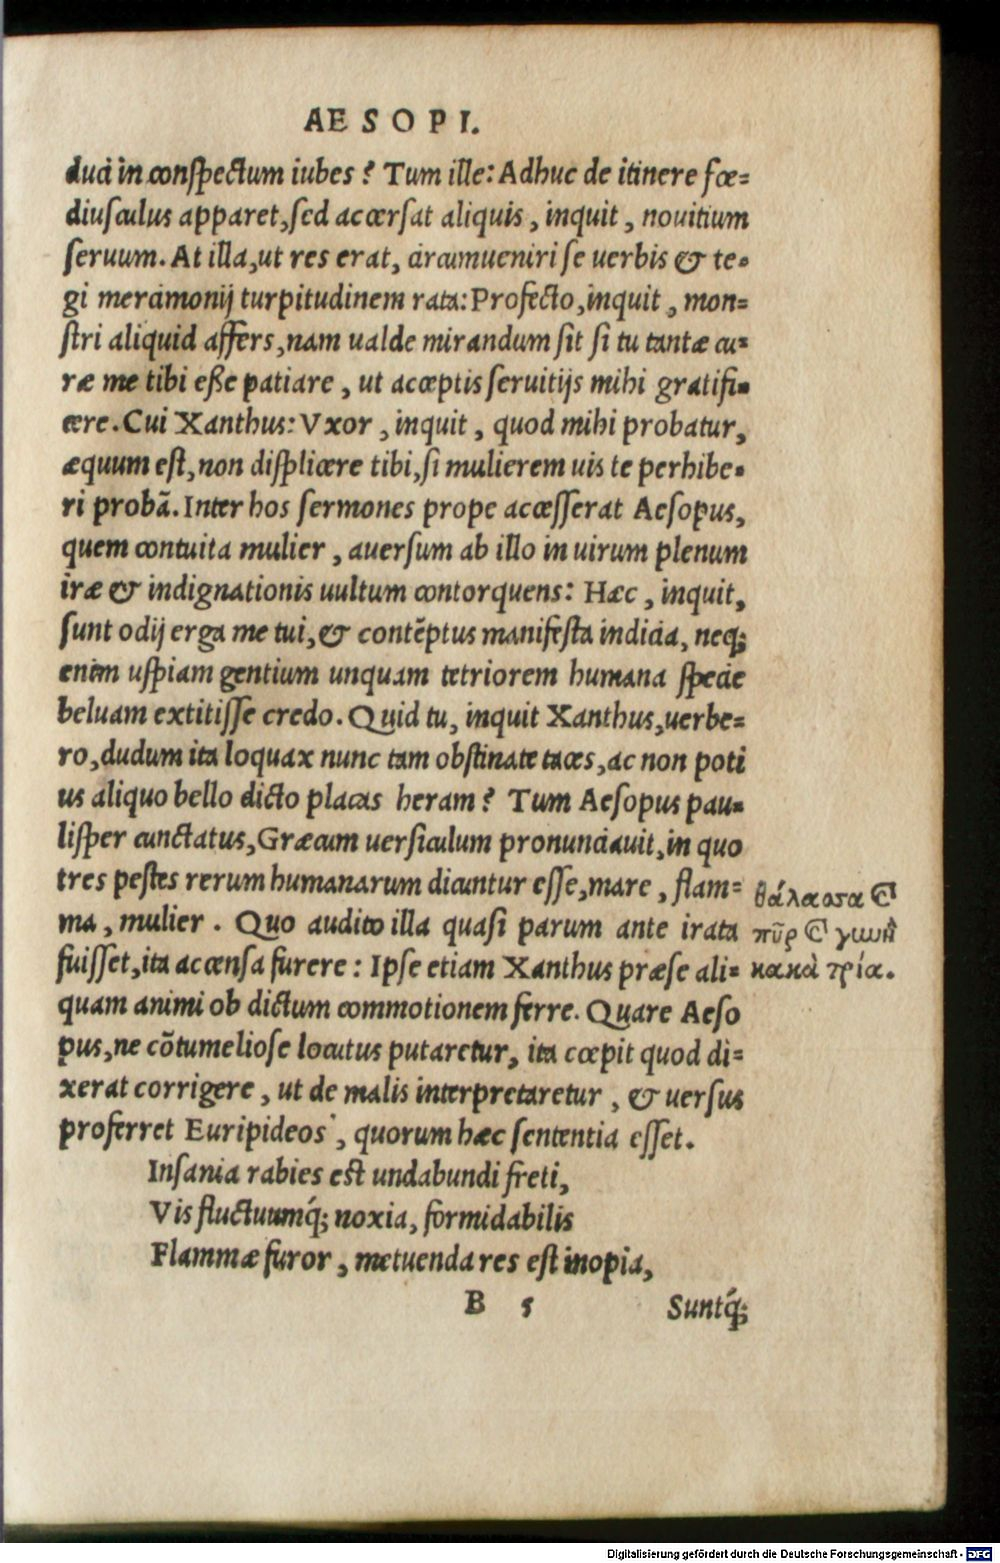 AESOPI.
duci in conspectum iubes? Tum ille: Adhuc de itinere fœ=
diusculus apparet, sed accersat aliquis, inquit, nouitium
seruum. At illa, ut res erat, circumueniri se uerbis & te-
gi mercimonij turpitudinem rata: Profecto, inquit, mon=
stri aliquid affers, nam ualde mirandum sit si tu tantæ cu-
ræ me tibi eße patiare, ut acceptis seruitijs mihi gratifi-
cere. Cui Xanthus: Vxor, inquit, quod mihi probatur,
æquum est, non displicere tibi, si mulierem uis te perhibe-
ri probã. Inter hos sermones prope accesserat Aesopus,
quem contuita mulier, auersum ab illo in uirum plenum
iræ & indignationis uultum contorquens: Hæc, inquit,
sunt odij erga me tui, & contẽptus manifesta indicia, neq;
enim uspiam gentium unquam tetriorem humana specie
beluam extitisse credo. Quid tu, inquit Xanthus, uerbe=
ro, dudum ita loquax nunc tam obstinate taces, ac non poti
us aliquo bello dicto placas heram? Tum Aesopus pau-
lisper cunctatus, Græcum uersiculum pronunciauit, in quo
tres pestes rerum humanarum dicuntur esse, mare, flam=
ma, mulier. Quo audito illa quasi parum ante irata
fuisset, ita accensa furere: Ipse etiam Xanthus præ se ali=
quam animi ob dictum commotionem ferre. Quare Aeso
pus, ne cõtumeliose locutus putaretur, ita cœpit quod di=
xerat corrigere, ut de malis interpretaretur, & uersus
proferret Euripideos, quorum hæc sententia esset.
Insania rabies est undabundi freti,
Vis fluctuumq́; noxia, formidabilis
Flammæ furor, metuenda res est inopia,
B 5 Suntq́;
θάλασσα καὶ
πῦρ καὶ γυνὴ
κακὰ τρία.
Digitalisierung gefördert durch die Deutsche Forschungsgemeinschaft - DFG